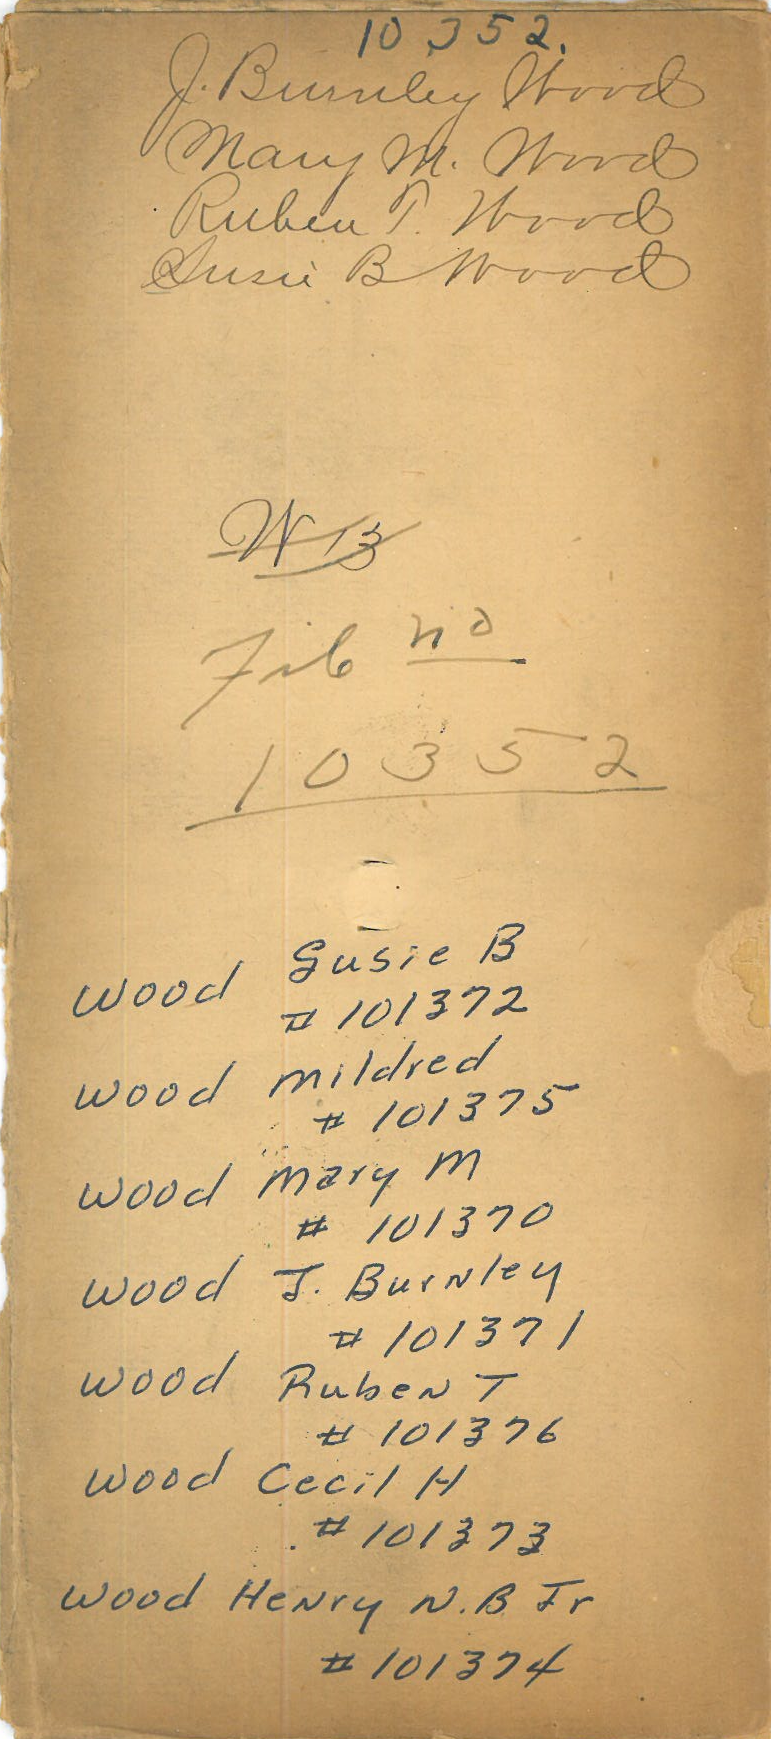 10352.
J. Burnley Wood
Mary M. Wood
Ruben T. Wood
Susie B Wood
W 13
File no
10352
Wood Susie B
# 101372
Wood Mildred
# 101375
Wood Mary M
# 101370
Wood J. Burnley
# 101371
Wood Ruben T
# 101376
Wood Cecil H
# 101373
Wood Henry N.B. Jr
# 101374